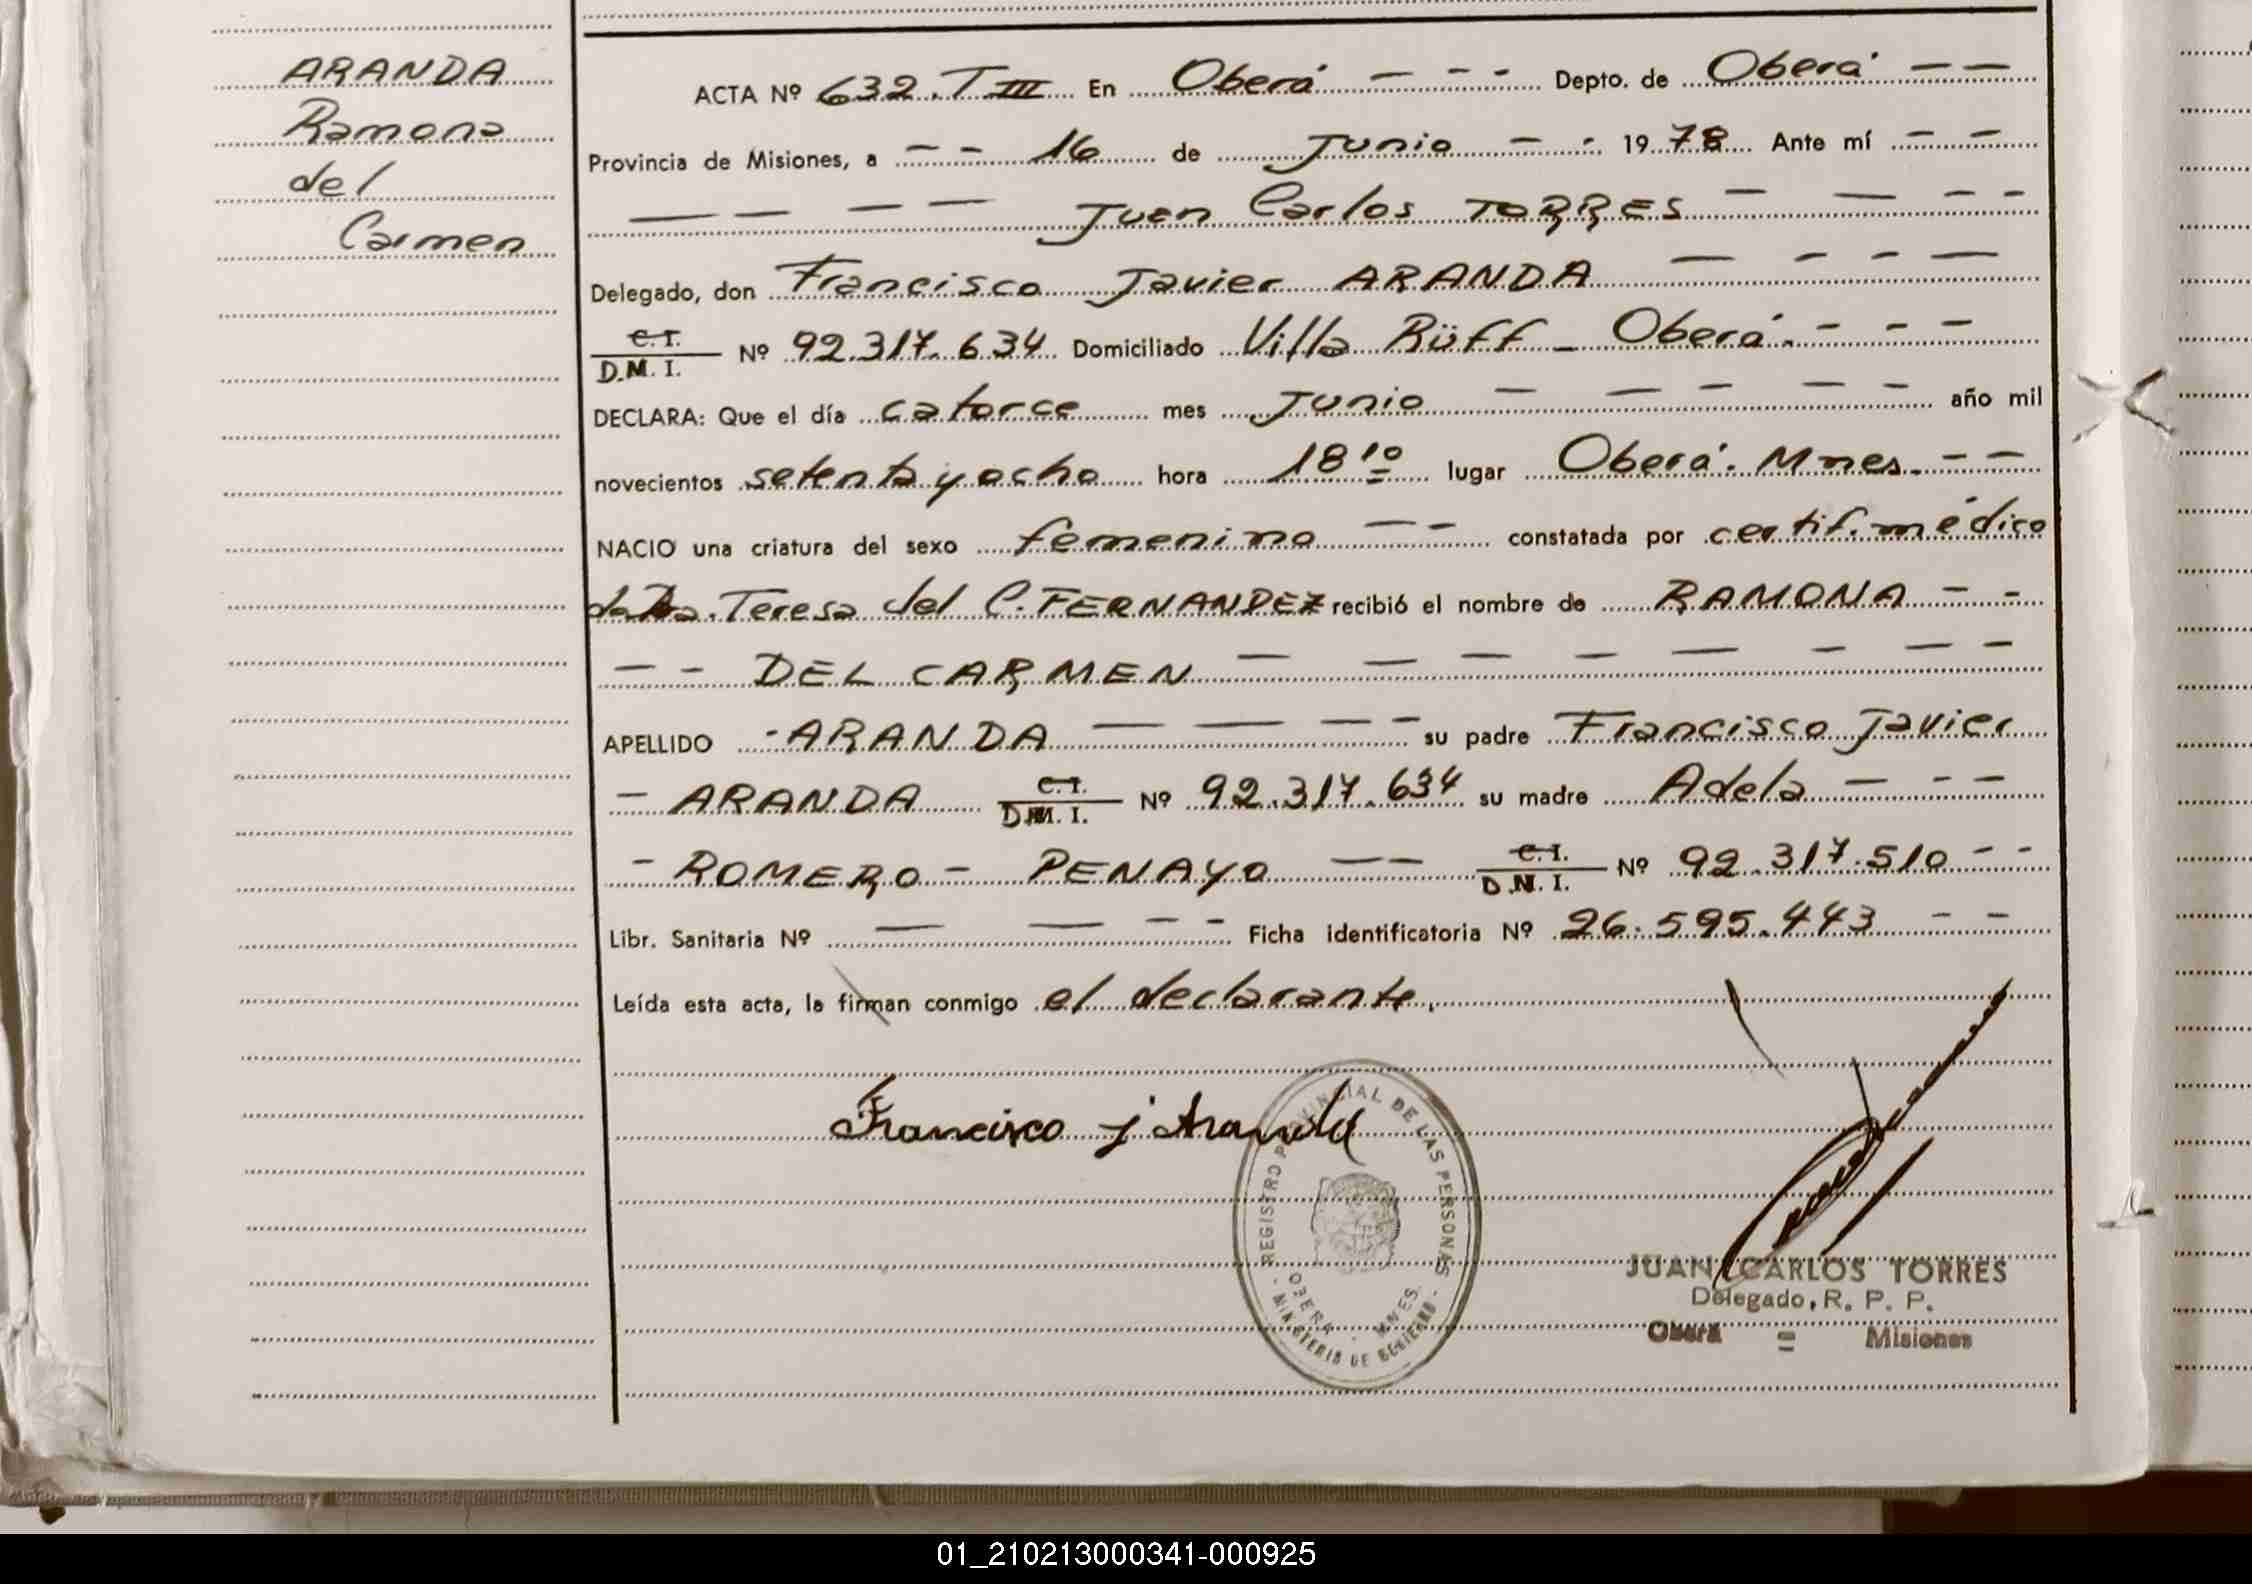 ARANDA
Ramona
del
Carmen
ACTA Nº 632. T III En Oberá — - - - Depto. de Oberá — —
Provincia de Misiones, a — - 16 de Junio — - 1978 Ante mí — —
— — — — Juan Carlos TORRES — — - -
Delegado, don Francisco Javier ARANDA — - - —
C. I.
D.M. I. Nº 92.317.634 Domiciliado Villa Rüff - Oberá. - - —
DECLARA: Que el día catorce mes Junio — — — — — año mil
novecientos setenta y ocho hora 18 10 lugar Oberá. Mnes. - —
NACIO una criatura del sexo femenino — - constatada por certif. médico
de la Dra. Teresa del C. FERNANDEZ recibió el nombre de RAMONA — -
— - DEL CARMEN — — — — — - — -
APELLIDO - ARANDA — — — - su padre Francisco Javier
- ARANDA C. I. D.M. I. Nº 92.317.634 su madre Adela — - —
- ROMERO - PENAYO — — C. I. D.N. I. Nº 92.317.510 - -
Libr. Sanitaria Nº — — - - Ficha identificatoria Nº 26.595.443 - -
Leída esta acta, la firman conmigo el declarante.
Francisco J Aranda
REGISTRO PROVINCIAL DE LAS PERSONAS
OBERA - MNES.
- MINISTERIO DE GOBIERNO -
JUAN CARLOS TORRES
Delegado, R. P. P.
Oberá = Misiones
01_210213000341-000925